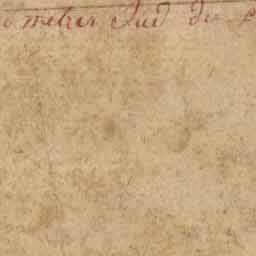 metres Sud du